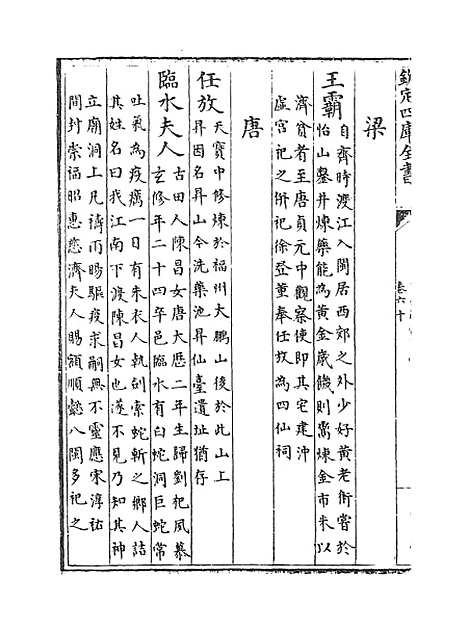 欽定四庫全書
卷六十
梁
王霸自齊時渡江入閩居西郊之外少好黄老術嘗於
怡山鑿井煉藥能為黄金歲饑則鬻煉金市米以
濟貧者至唐貞元中觀察使即其宅建沖
虛宫祀之併祀徐登董奉任放為四仙祠
唐
任放天寶中修煉於福州大鵬山後於此山上
昇因名昇山今洗藥池昇仙臺遺址猶存
臨水夫人古田人陳昌女唐大厯二年生歸劉杞夙慕
玄修年二十四卒邑臨水有白蛇洞巨蛇常
吐氣為疫癘一日有朱衣人執劍索蛇斬之鄉人詰
其姓名曰我江南下渡陳昌女也遂不見乃知其神
立廟洞上凡禱雨暘驅疫求嗣無不靈應宋淳祐
間封崇福昭惠慈濟夫人賜額順懿八閩多祀之